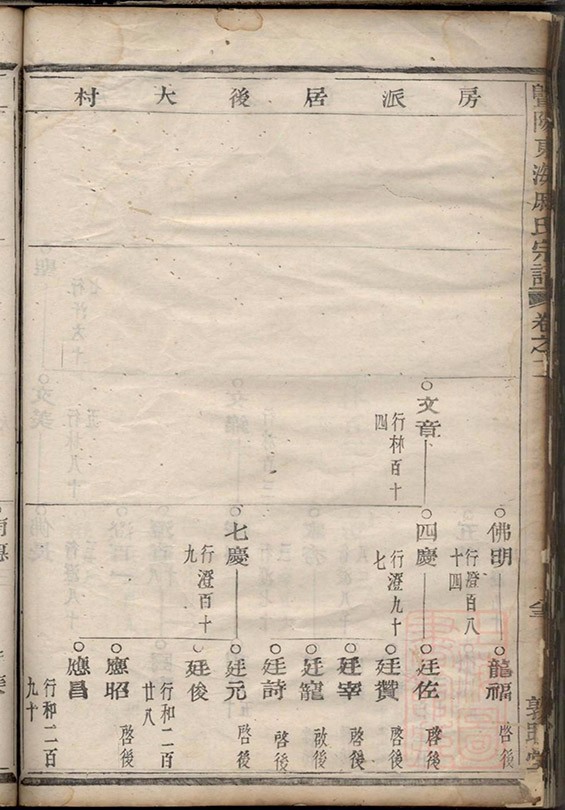 暨陽東海
氏宗譜
卷之二
房派居後大村
文章
行林百十
四
佛明
行澄百八
十四
四慶
行澄九十
七
七慶
行澄百十
九
龍福
啓後
廷佐
啓後
廷贊
啓後
廷宰
啓後
廷寵
啟後
廷詩
啓後
廷元
啓後
廷俊
行和二百
廿八
應昭
啓後
應昌
行和二百
九十